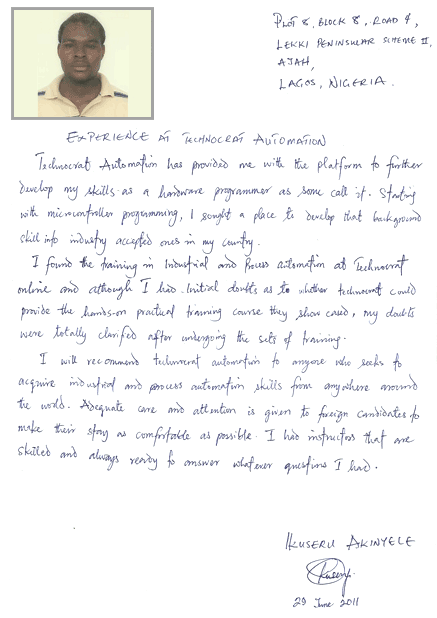 PLOT 8, BLOCK 8, ROAD 4,
LEKKI PENINSULAR SCHEME II,
AJAH,
LAGOS, NIGERIA.
EXPERIENCE AT TECHNOCRAT AUTOMATION
Technocrat Automation has provided me with the platform to further
develop my skills as a hardware programmer as some call it. Starting
with microcontroller programming, I sought a place to develop that background
skill into industry accepted ones in my country.
I found the training in Industrial and Process automation at Technocrat
online and although I had initial doubts as to whether technocrat could
provide the hands-on practical training course they show cased, my doubts
were totally clarified after undergoing the sets of training.
I will recommend technocrat automation to anyone who seeks to
acquire industrial and process automation skills from anywhere around
the world. Adequate care and attention is given to foreign candidates to
make their stay as comfortable as possible. I had instructors that are
skilled and always ready to answer whatever questions I had.
IKUSERU AKINYELE
29 June 2011